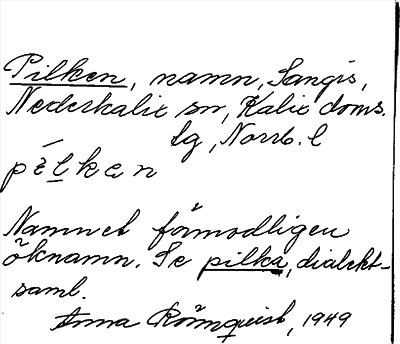 Pilken, namn, Sangis,
Nederkalix sn, Kalix doms.
lg, Norrb. l
pílkan
Namnet förmodligen
öknamn. Se pilka, dialekt-
saml.
Anna Rönnquist, 1949